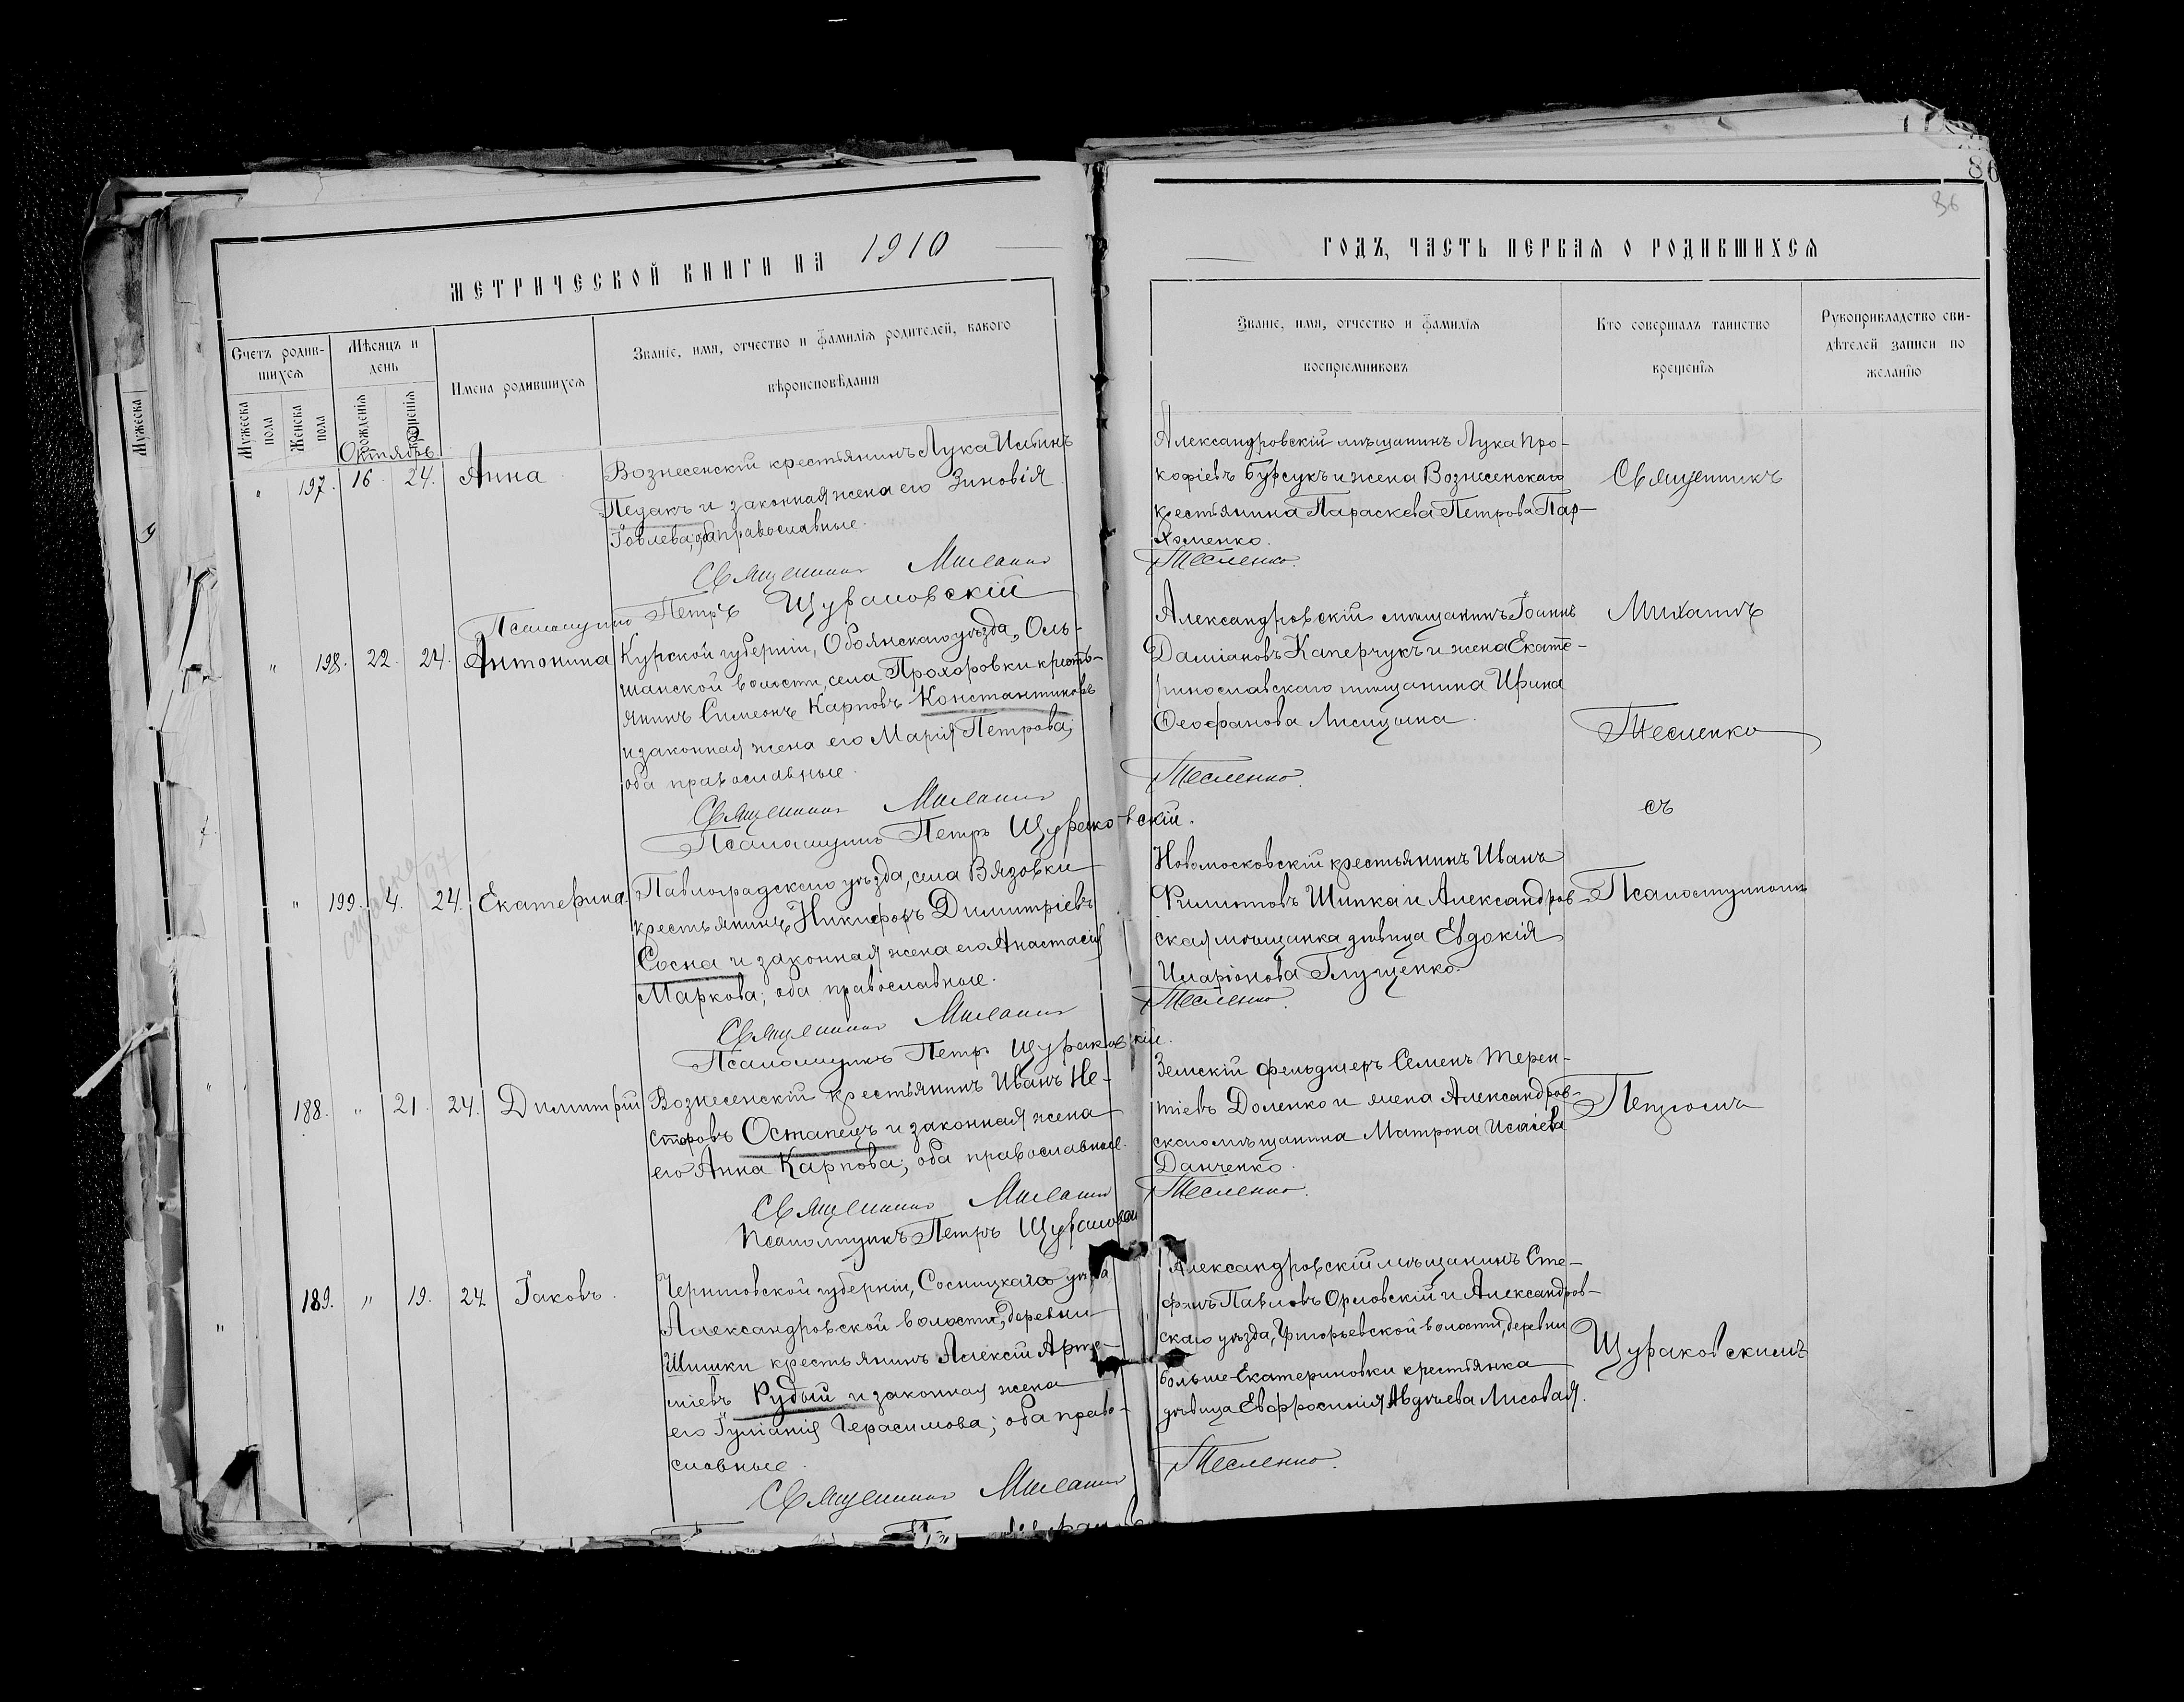 86
86
МЕТРИЧЕСКОЙ КНИГИ НА 1910
Счетъ родив-
шихся
Мѣсяцъ и
день
Имена родившихся
Званіе, имя, отчество и фамилія родителей, какого
вѣроисповѣданія
Мужеска
Мужеска
пола
Женска
пола
рожденія
крещенія
Октябрь
" 197. 16. 24. Анна
Вознесенскій крестьянинъ Лука Ильинъ
Педакъ и законная жена его Зиновія
Іовлева; оба православные.
Священникъ
Псаломщикъ Петръ Щураковскій
" 198. 22. 24. Антонина
Курской губерніи, Обоянскаго уѣзда, Оль-
шанской волости, села Прохоровки кресть-
янинъ Симеонъ Карповъ Константиновъ
и законная жена его Марія Петрова;
оба православные.
Священникъ
Псаломщикъ Петръ Щураковскій.
" 199. 4. 24. Екатерина
Павлоградскаго уѣзда, села Вязовки
крестьянинъ Никифоръ Димитріевъ
Сосна и законная жена его Анастасія
Маркова; оба православные.
Священникъ
Псаломщикъ Петръ Щураковскій.
188. " 21. 24. Димитрій
Вознесенскій крестьянинъ Иванъ Не-
стеровъ Остапецъ и законная жена
его Анна Карпова; оба православные.
Священникъ
Псаломщикъ Петръ Щураковскій
189. " 19. 24 Іаковъ.
Черниговской губерніи, Сосницкаго уѣзда
Александровской волости, деревни
Шишки крестьянинъ Алексій Арте-
міевъ Рудый и законная жена
его Іуліанія Герасимова; оба право-
славные.
Священникъ
ГОДЪ, ЧАСТЬ ПЕРВАЯ О РОДИВШИХСЯ
Званіе, имя, отчество и фамилія
воспріемниковъ
Кто совершалъ таинство
крещенія
Рукоприкладство сви-
дѣтелей записи по
желанію
Александровскій мѣщанинъ Лука Про-
кофіевъ Бурсукъ и жена Вознесенскаго
крестьянина Параскева Петрова Пар-
хоменко.
Тесленко.
Александровскій мѣщанинъ Іоаннъ
Даміановъ Каперчукъ и жена Екате-
ринославскаго мѣщанина Ирина
Феофанова Лисицына.
Тесленко.
Новомосковскій крестьянинъ Иванъ
Филиповъ Шипка и Александров-
ская мѣщанка дѣвица Евдокія
Иларіонова Глущенко.
Тесленко.
Земскій фельдшеръ Семенъ Терен-
тіевъ Доленко и жена Александров-
скаго мѣщанина Матрона Исаіева
Данченко.
Тесленко.
Александровскій мѣщанинъ Сте-
фанъ Павловъ Орловскій и Александров-
скаго уѣзда, Григорьевской волости, деревни
Больше-Екатериновки крестьянка
дѣвица Евфросинія Авдѣева Лисовая.
Тесленко.
Священникъ
Михаилъ
Тесленко
съ
Псаломщикомъ
Петромъ
Щураковскимъ